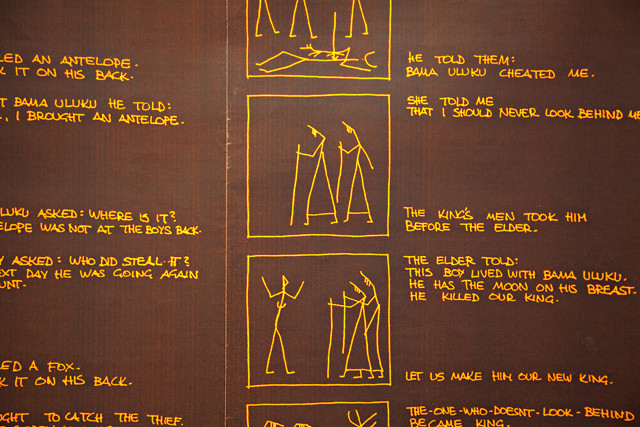 LED AN ANTELOPE.
K IT ON HIS BACK.
T BAMA ULUKU HE TOLD:
., I BROUGHT AN ANTELOPE.
LUKU ASKED: WHERE IS IT?
ELOPE WAS NOT AT THE BOYS BACK.
Y ASKED: WHO DID STEAL IT?
EXT DAY HE WAS GOING AGAIN
UNT.
ED A FOX.
K IT ON HIS BACK.
UGHT TO CATCH THE THIEF.
HE TOLD THEM:
BAMA ULUKU CHEATED ME.
SHE TOLD ME
THAT I SHOULD NEVER LOOK BEHIND ME
THE KING'S MEN TOOK HIM
BEFORE THE ELDER.
THE ELDER TOLD:
THIS BOY LIVED WITH BAMA ULUKU.
HE HAS THE MOON ON HIS BREAST.
HE KILLED OUR KING.
LET US MAKE HIM OUR NEW KING.
THE-ONE-WHO-DOESNT-LOOK-BEHIND
BECAME KING.